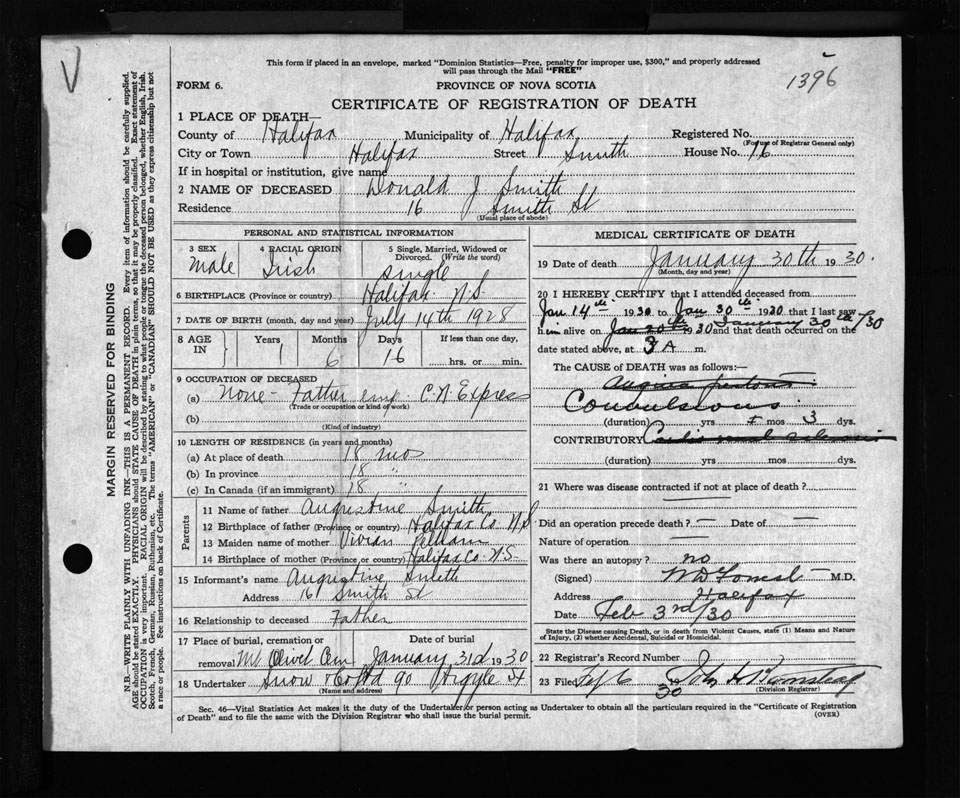 This form if placed in an envelope, marked "Dominion Statistics—Free, penalty for improper use, $300," and properly addressed
will pass through the Mail "FREE"
V
1396
FORM 6.
PROVINCE OF NOVA SCOTIA
CERTIFICATE OF REGISTRATION OF DEATH
1 PLACE OF DEATH—
County of Halifax Municipality of Halifax Registered No.
(For use of Registrar General only)
City or Town Halifax Street Smith House No. 16
If in hospital or institution, give name
2 NAME OF DECEASED Donald J Smith
Residence 16 Smith St
(Usual place of abode)
MARGIN RESERVED FOR BINDING
N.B.—WRITE PLAINLY WITH UNFADING INK—THIS IS A PERMANENT RECORD. Every item of information should be carefully supplied.
AGE should be stated EXACTLY. PHYSICIANS should STATE CAUSE OF DEATH in plain terms, so that it may be properly classified. Exact statement of
OCCUPATION is very important. RACIAL ORIGIN will be described by stating to what people or tongue the deceased person belonged, whether English, Irish,
Scotch, French, German, Russian, Ruthenian, etc. The terms "AMERICAN" or "CANADIAN" SHOULD NOT BE USED as they express citizenship but not
a race or people. See instructions on back of Certificate.
PERSONAL AND STATISTICAL INFORMATION
3 SEX
Male
4 RACIAL ORIGIN
Irish
5 Single, Married, Widowed or
Divorced. (Write the word)
Single
6 BIRTHPLACE (Province or country) Halifax N.S.
7 DATE OF BIRTH (month, day and year) July 14th 1928
8 AGE
IN
Years
1
Months
6
Days
16
If less than one day,
hrs. or min.
9 OCCUPATION OF DECEASED
(a) None - Father emp. C.N. Express
(Trade or occupation or kind of work)
(b)
(Kind of industry)
10 LENGTH OF RESIDENCE (in years and months)
(a) At place of death 18 mos
(b) In province 18 "
(c) In Canada (if an immigrant) 18 "
Parents
11 Name of father Augustine Smith
12 Birthplace of father (Province or country) Halifax Co N.S
13 Maiden name of mother Vivian
14 Birthplace of mother (Province or country) Halifax Co. N.S.
15 Informant's name Augustine Smith
Address 16 Smith St
16 Relationship to deceased Father
17 Place of burial, cremation or
removal Mt Olivet Cem
Date of burial
January 31d 1930
18 Undertaker Snow & Co Ltd 90 Argyle St
(Name and address)
MEDICAL CERTIFICATE OF DEATH
19 Date of death January 30th 1930.
(Month, day and year)
20 I HEREBY CERTIFY that I attended deceased from
Jan 14th 1930 to Jan 30th 1930 that I last saw
January 30th/30
him alive on Jan 1930 and that death occurred on the
date stated above, at 3 A m.
The CAUSE of DEATH was as follows:—
Convulsions
(duration) yrs mos 3 dys.
CONTRIBUTORY
(duration) yrs mos dys.
21 Where was disease contracted if not at place of death?
Did an operation precede death? — Date of —
Nature of operation —
Was there an autopsy? no
(Signed) M.D.
Address Halifax
Date Feb 3rd/30
State the Disease causing Death, or in death from Violent Causes, state (1) Means and Nature
of Injury, (2) whether Accidental, Suicidal or Homicidal.
22 Registrar's Record Number
23 Filed Feb 6 30 John H
(Division Registrar)
Sec. 46—Vital Statistics Act makes it the duty of the Undertaker or person acting as Undertaker to obtain all the particulars required in the "Certificate of Registration
of Death" and to file the same with the Division Registrar who shall issue the burial permit.
(OVER)